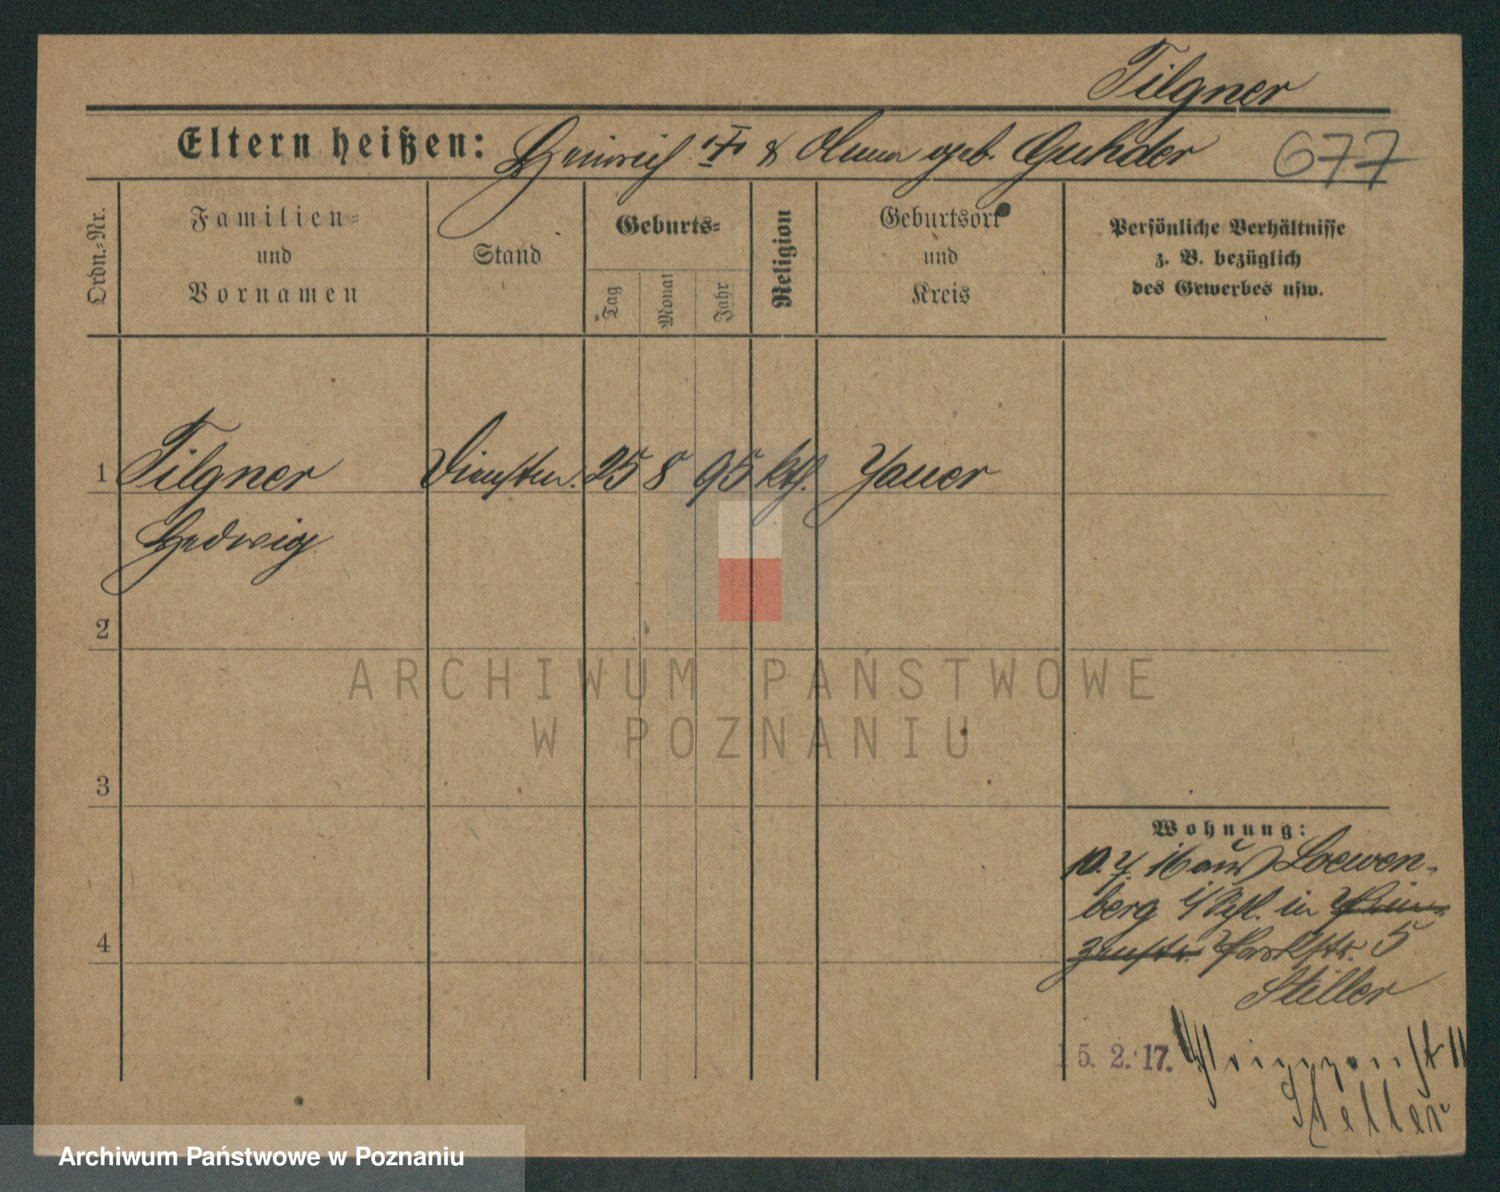 Tilgner
Eltern heißen: Heinrich & geb. Guhder
677
Ordn.-Nr.
Familien-
und
Vornamen
Stand
Geburts-
Tag
Monat
Jahr
Religion
Geburtsort
und
Kreis
Persönliche Verhältnisse
z. B. bezüglich
des Gewerbes usw.
1 Tilgner Dienstm. 25 8 95 kth. Jauer
Hedwig
2
3
4
Wohnung:
10. 7. 16 aus Loewen-
berg i/Schl. in Prin-
zenstr. Parkstr. 5
Stiller
15. 2. 17. Prinzenst
Steller
ARCHIWUM PAŃSTWOWE
W POZNANIU
Archiwum Państwowe w Poznaniu